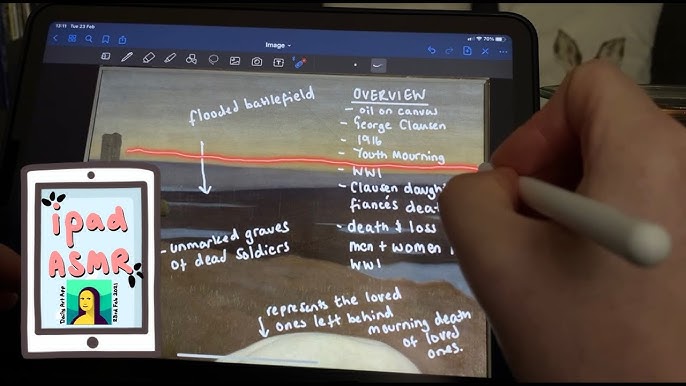 13:11 Tue 23 Feb
70%
Image
flooded battlefield
OVERVIEW
- oil on canvas
- George Clausen
- 1916
- Youth Mourning
- WW1
- Clausen daugh
fiancés dea
- death & loss
men + women
WW1
- unmarked graves
of dead soldiers
represents the loved
ones left behind
mourning death
of loved
ones.
ipad
ASMR
Daily Art App
23rd Feb 2021